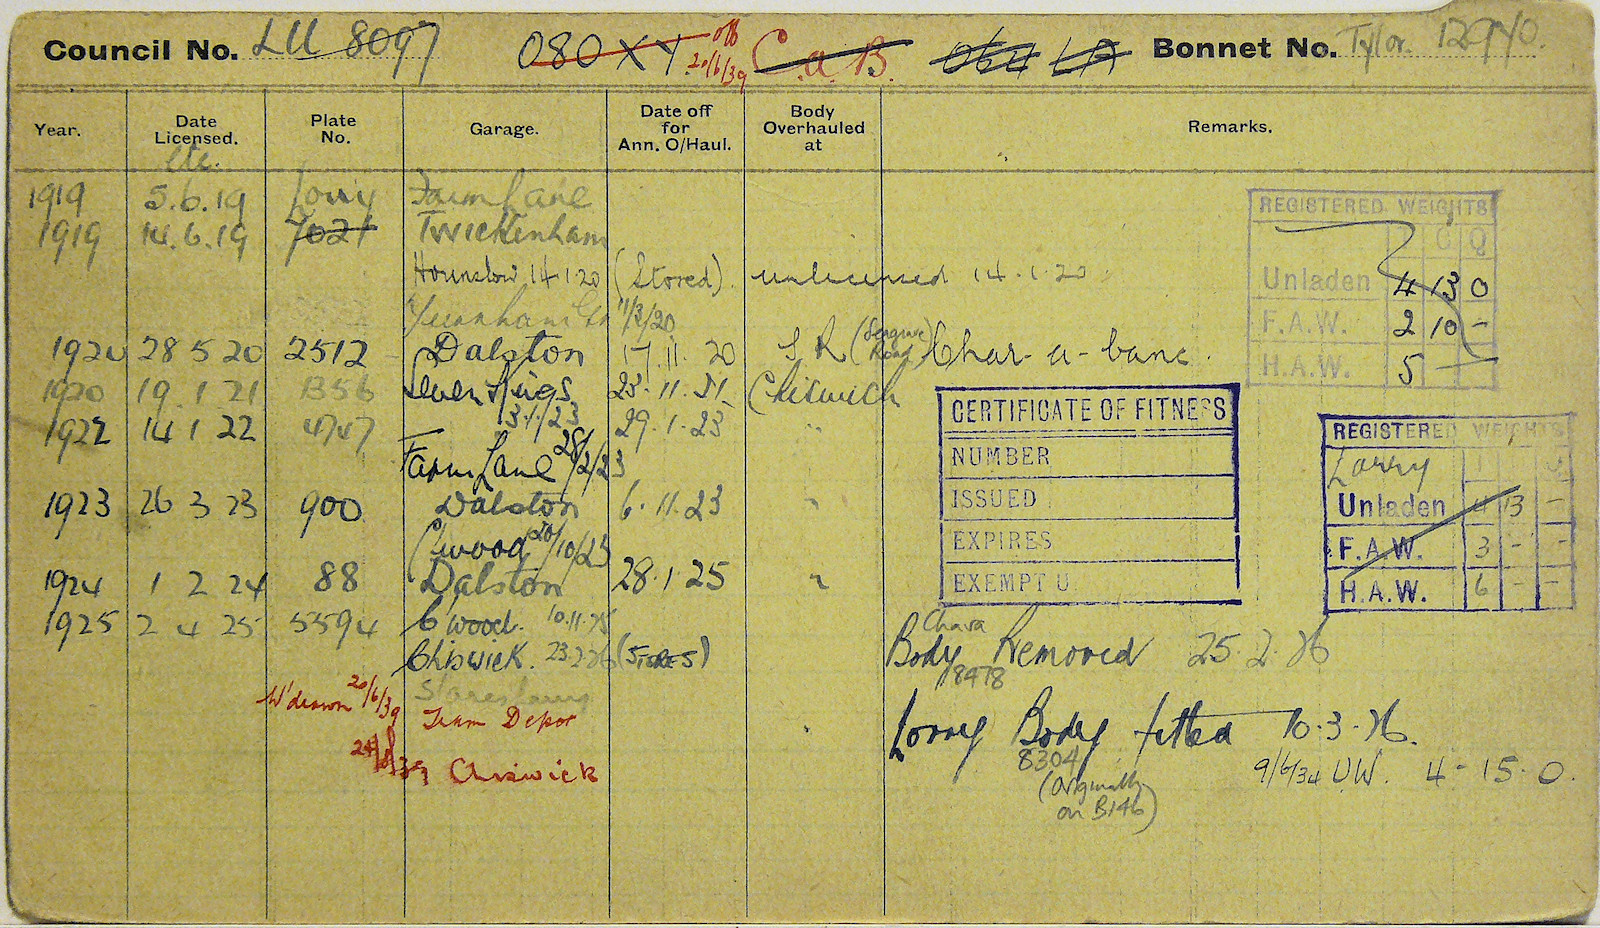 Council No. LU 8097 080 XY off 20/6/39 C.a.B. Bonnet No. Tylor
Year. Date Licensed. etc. Plate No. Garage. Date off for Ann. O/Haul. Body Overhauled at Remarks.
1919 5.6.19 Lorry Farm Lane
1919 14.6.19 7021 Twickenham
Hounslow 14.1.20 (Stored). unlicensed 14.1.20
11/3/20
1920 28 5 20 2512 Dalston 17.11.20 S R (Seagrave Road) Char-a-banc.
1920 19.1.21 1356 Seven Kings 23.11.21 Chiswick
3.1.23
1922 14 1 22 4747 29.1.23 "
Farm Lane 28/2/23
1923 26 3 23 900 Dalston 6.11.23 "
C'wood 20/10/23
1924 1 2 24 88 Dalston 28.1.25 "
1925 2 4 25 5594 C'wood. 10.11.25
Chiswick. 23.2.26 (STORES)
W'drawn 20/6/39 Tram Depot
Chiswick
REGISTERED WEIGHTS
C Q
Unladen 4 13 0
F.A.W. 2 10 -
H.A.W. 5 -
CERTIFICATE OF FITNESS
NUMBER
ISSUED
EXPIRES
EXEMPT U
REGISTERED WEIGHTS
Lorry
Unladen 4 13 -
F.A.W. 3 - -
H.A.W. 6 - -
Chara
Body Removed 25.2.26
8478
Lorry Body fitted 10.3.26.
8304 9/6/34 U.W. 4-15.0.
(Originally
on B146)